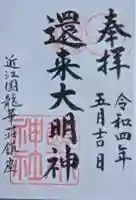 奉拝
令和四年
五月吉日
還来大明神
近江国龍華荘鎮座